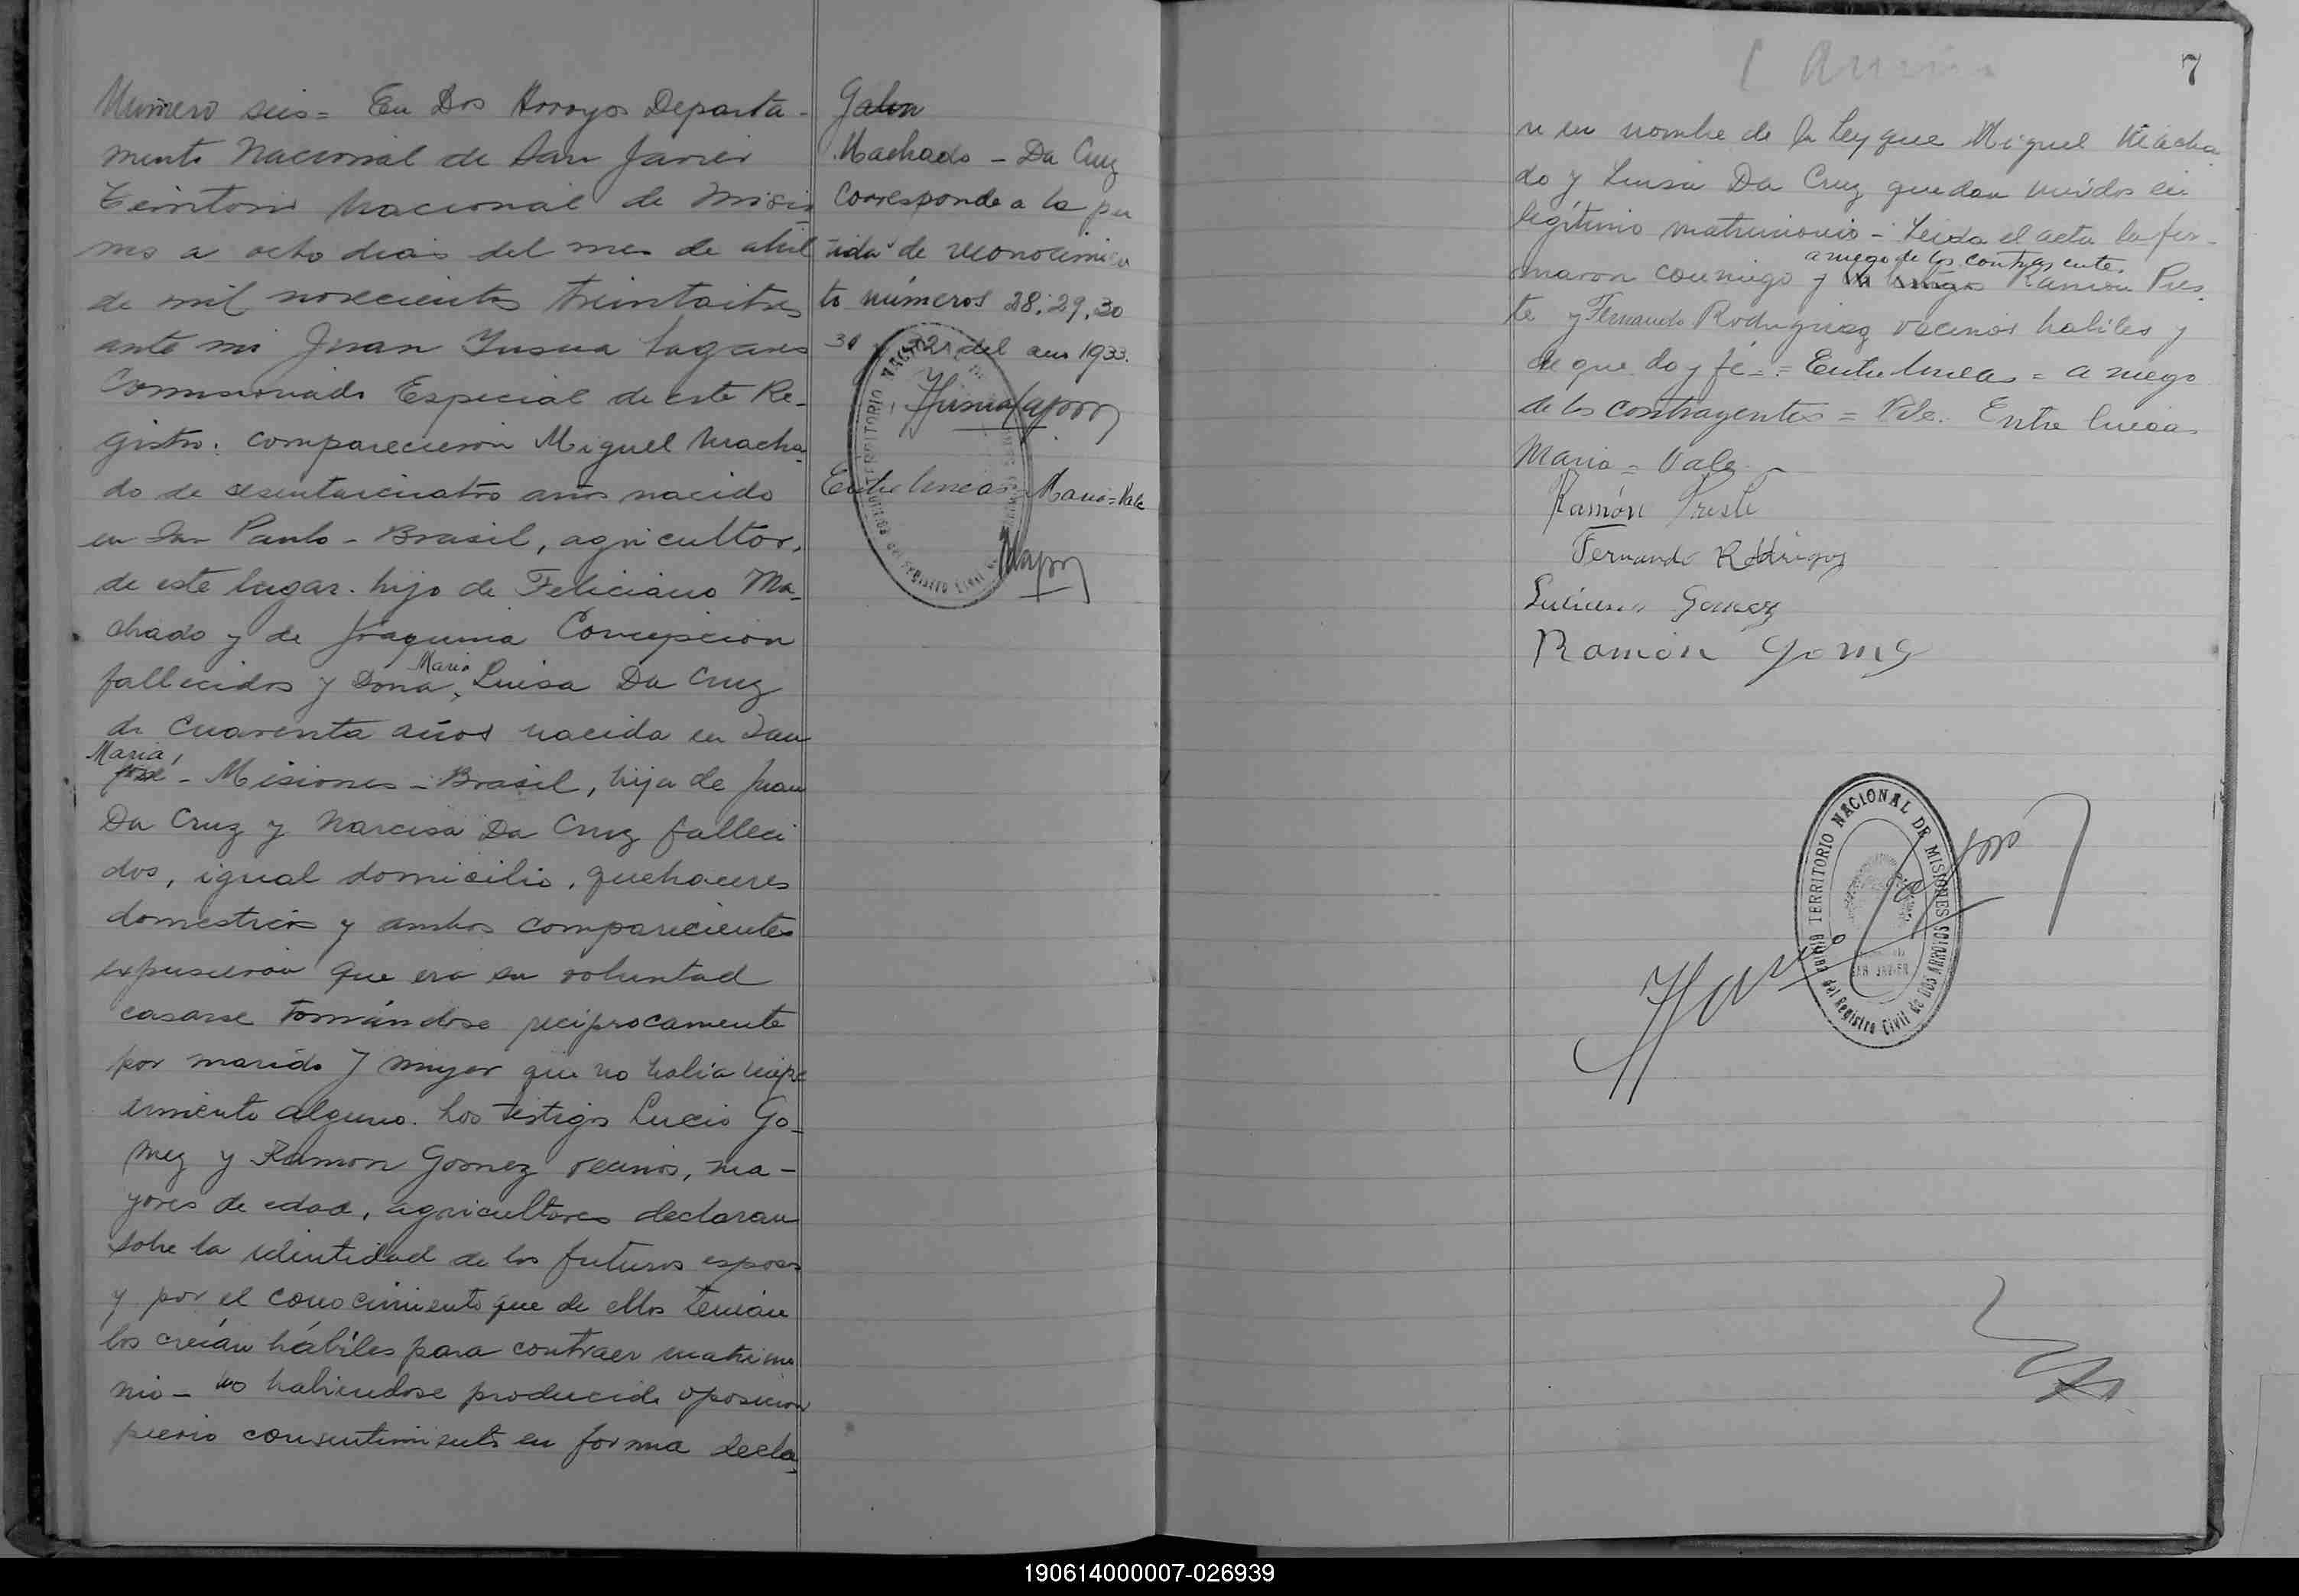 Numero seis = En Dos Arroyos Departa-
mento Nacional de San Javier
Territorio Nacional de Misio
nes a ocho dias del mes de abril
de mil novecientos treintaitres
ante mi Juan Lagares
Comisionado Especial de este Re-
gistro: comparecieron Miguel Macha-
do de sesentaicuatro años nacido
en San Paulo - Brasil, agricultor,
de este lugar. hijo de Feliciano Ma-
chado y de Joaquina Concepcion
fallecidos y Dona Maria Luisa Da Cruz
de cuarenta años nacida en San
Maria,
José - Misiones - Brasil, hija de Juan
Da Cruz y Narcisa Da Cruz falleci
dos, igual domicilio, quehaceres
domesticos y ambos comparecientes
expusieron que era su voluntad
casarse tomándose reciprocamente
por marido y mujer que no habia impe
dimento alguno. Los testigos Lucio Go-
mez y Ramon Gomez vecinos, ma-
yores de edad, agricultores declaran
sobre la identidad de los futuros esposos
y por el conocimiento que de ellos tenían
los creían hábiles para contraer matrimo
nio - no habiendose producido oposicion
previo consentimiento en forma decla
Machado - Da Cruz
Corresponde a la par
tida de reconocimien
to números 28.29.30
31 y 32 del año 1933.
Entre lineas Maria = Vale
TERRITORIO NACIONAL
del Registro Civil
7
ro en nombre de la Ley que Miguel Macha
do y Luisa Da Cruz quedan unidos en
legítimo matrimonio - Leida el acta la fir-
a ruego de los contrayentes
maron conmigo y Ramon Pres
te y Fernando Rodriguez vecinos habiles y
de que doy fé. = Entre lineas = a ruego
de los contrayentes = Vale. Entre lineas
Maria = Vale
Ramón Preste
Fernando Rodrigues
Luciano Gomez
Ramón Gomez
TERRITORIO NACIONAL DE MISIONES
Oficina del Registro Civil de DOS ARROYOS
SAN JAVIER
190614000007-026939